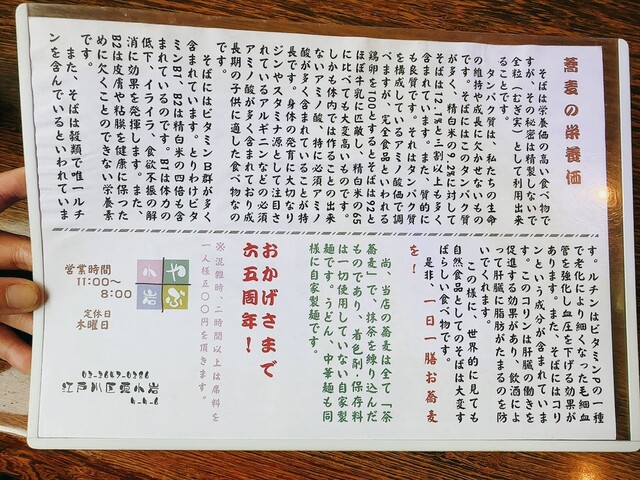 蕎麦の栄養価
そばは栄養価の高い食べ物で
すが、その秘密は精製しないで
全粒（むぎ実）として利用出来
ることです。
タンパク質は、私たちの生命
の維持や成長に欠かせないもの
です。そばにはこのタンパク質
が多く、精白米の9.2%に対して
そばは12.1%と三割以上も多く
含まれています。また、質的に
も良質です。それはタンパク質
を構成しているアミノ酸価で調
べますが、完全食品といわれる
鶏卵を100とするとそばは92と
ほぼ牛乳に匹敵し、精白米の65
に比べても大変高いものです。
しかも体内では作ることが出来
ないアミノ酸、特に必須アミノ
酸が多く含まれていることが特
長です。身体の発育に大切なリ
ジンやスタミナ源として注目さ
れているアルギニンなどの必須
アミノ酸が多く含まれており成
長期の子供に適した食べ物なの
です。
そばにはビタミンB群が多く
含まれています。とりわけビタ
ミンB1、B2は精白米の四倍も含
まれているのです。B1は体力の
低下、イライラ、食欲不振の解
消に効果を発揮します。また、
B2は皮膚や粘膜を健康に保った
めに欠くことのできない栄養素
です。
また、そばは穀類で唯一ルチ
ンを含んでいるといわれていま
す。ルチンはビタミンPの一種
で老化により細くなった毛細血
管を強化し血圧を下げる効果が
あります。また、そばにはコリ
ンという成分が含まれていま
す。このコリンは肝臓の働きを
促進する効果があり、飲酒によ
って肝臓に脂肪がたまるのを防
いでくれます。
この様に、世界的に見ても
自然食品としてのそばは大変す
ばらしい食べ物です。
是非、一日一膳お蕎麦
を！
尚、当店の蕎麦は全て「茶
蕎麦」で、抹茶を練り込んだ
ものであり、着色剤・保存料
は一切使用していない自家製
麺です。うどん、中華麺も同
様に自家製麺です。
おかげさまで
六五周年！
※混雑時、二時間以上は席料を
一人様五〇〇円を頂きます。
やぶ
小岩
営業時間
11:00～
8:00
定休日
木曜日